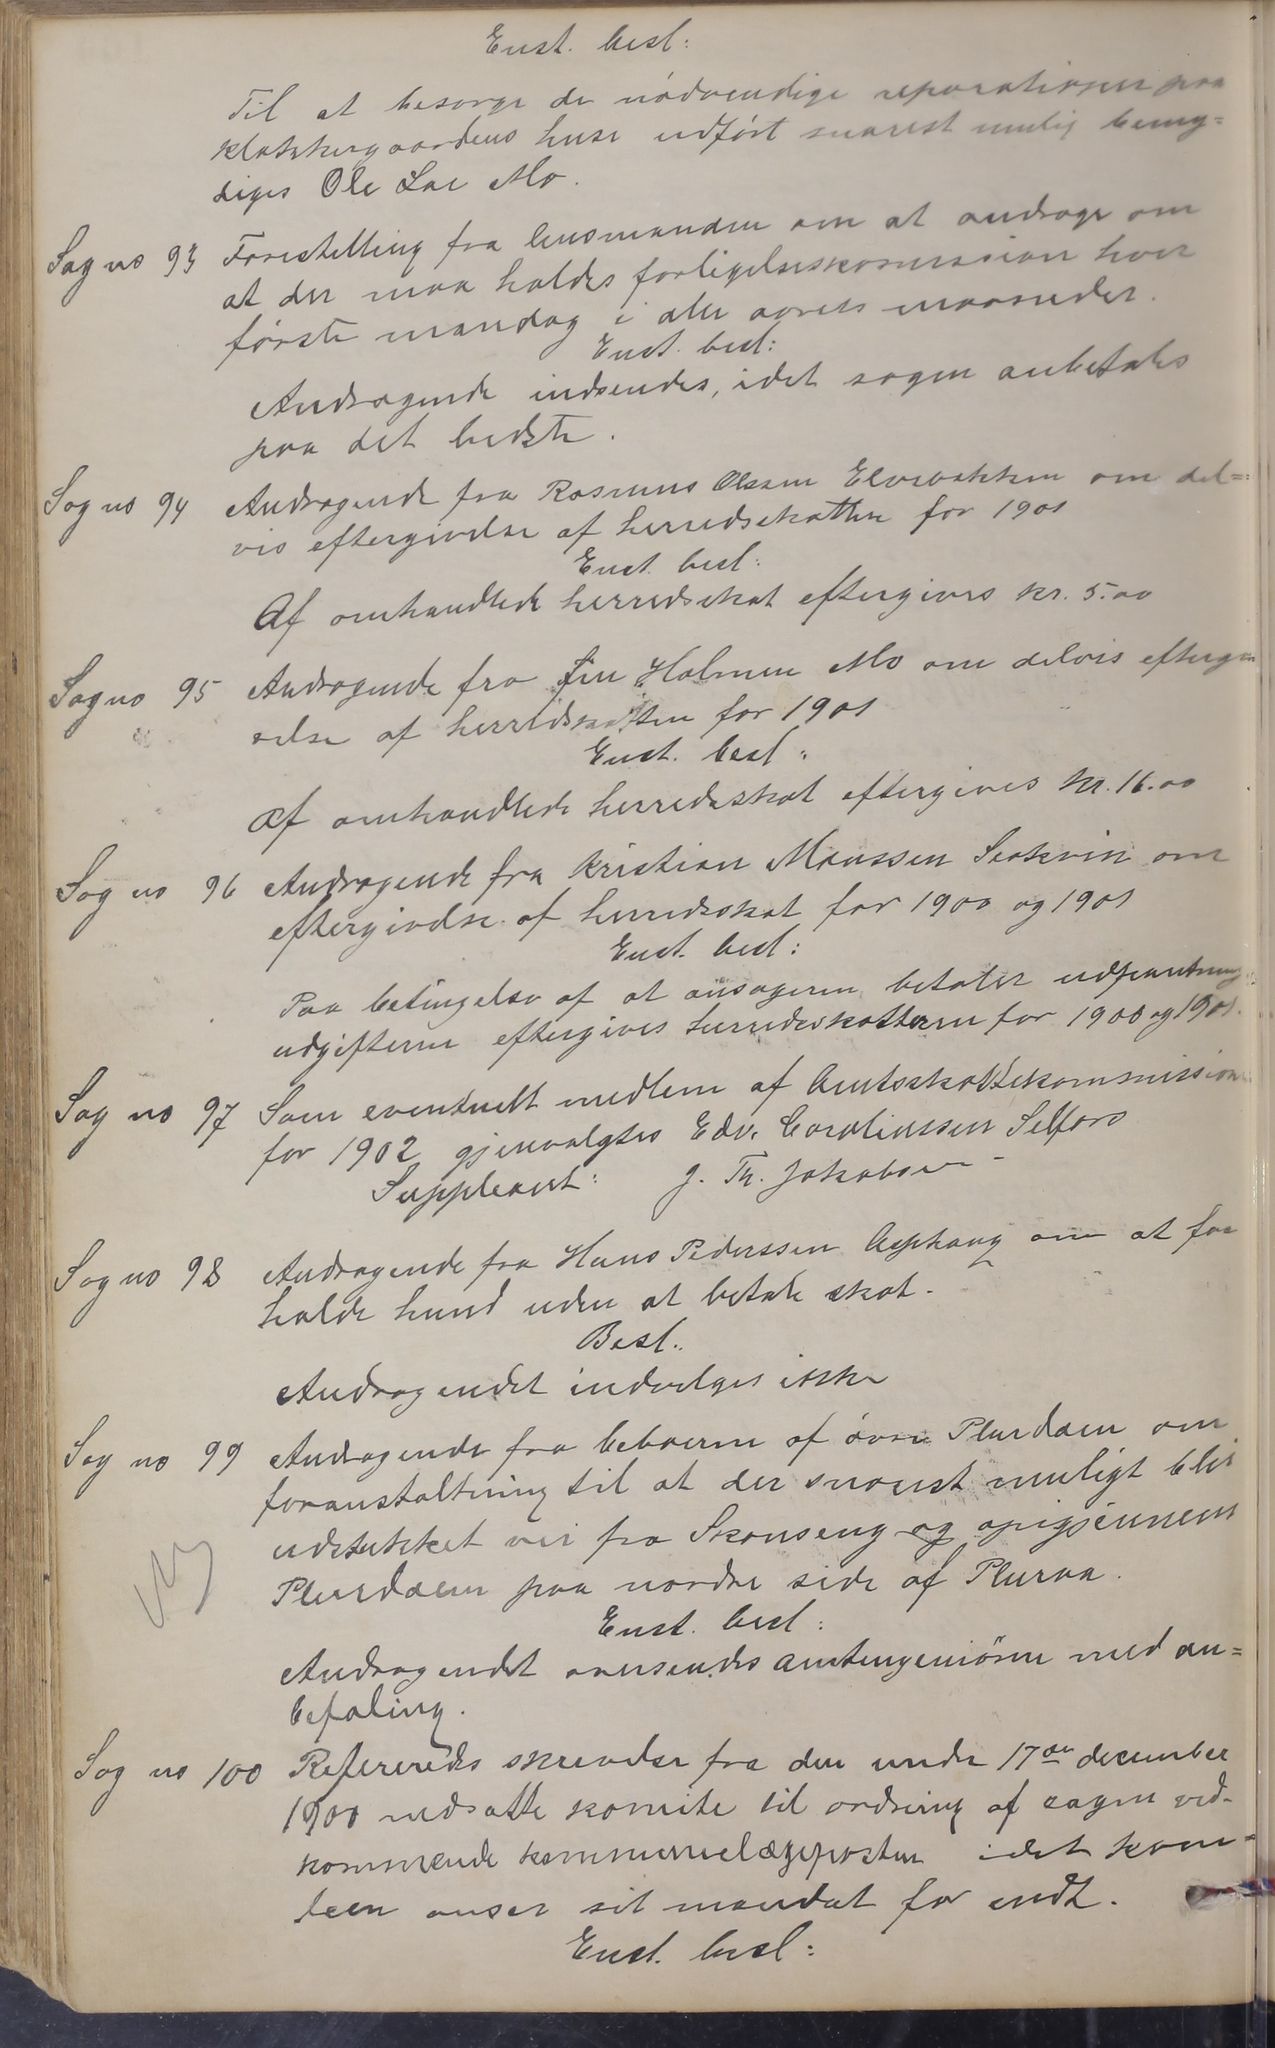 Enst. besl:
Til at besørge de nødvendige reparationer paa
klokkergaardens huse udført snarest mulig bemyn=
diges Ole Lae Mo.
Sag no 93 Forestilling fra lensmanden om at andrage om
at der maa holdes forligelseskomission hver
første mandag i alle aarets maaneder.
Enst. besl:
Andragende indsendes, idet sagen anbefales
paa det bedste.
Sag no 94 Andragende fra Rasmus Olssen Elvebakken om del=
vis eftergivelse af herredsskatten for 1901
Enst. besl:
Af omhandlede herredsskat eftergives kr. 5.00
Sag no 95 Andragende fra Holmen Mo om delvis eftergi
velse af herredsskatten for 1901
Enst. besl:
Af omhandlede herredsskat eftergives kr. 16.00
Sag no 96 Andragende fra Kristian Monssen om
eftergivelse af herredsskat for 1900 og 1901
Enst. besl:
Paa betingelse af at ansøgeren betaler udpantnings
udgifterne eftergives herredsskatterne for 1900 og 1901.
Sag no 97 Som eventuelt medlem af Amtsskattekommissionen
for 1902 gjenvalgtes Edv. Carolinssen Selfors
Suppleant: J. Th. Jakobsen
Sag no 98 Andragende fra Hans Pederssen Asphaug om at faa
holde hund uden at betale skat.
Besl.:
Andragendet indvilges ikke
Sag no 99 Andragende fra beboerne af øvre Plurdalen om
foranstaltning til at der snarest muligt blir
udstukket vei fra Skonseng og opigjennem
Plurdalen paa nordre side af Pluraa.
Enst. besl:
Andragendet oversendes amtsingeniøren med an=
befaling.
Sag no 100 Refereredes skrivelse fra den under 17de december
1900 nedsatte komite til ordning af sagen ved-
kommende kommunelægeposten idet kom=
teen anser sit mandat for endt.
Enst. besl: